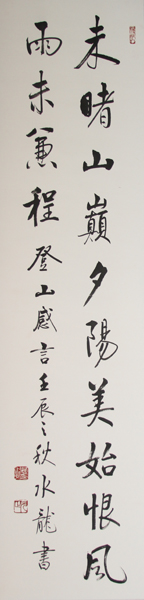 未睹山巔夕陽美始恨風
雨未兼程登山感言壬辰之秋水龍書